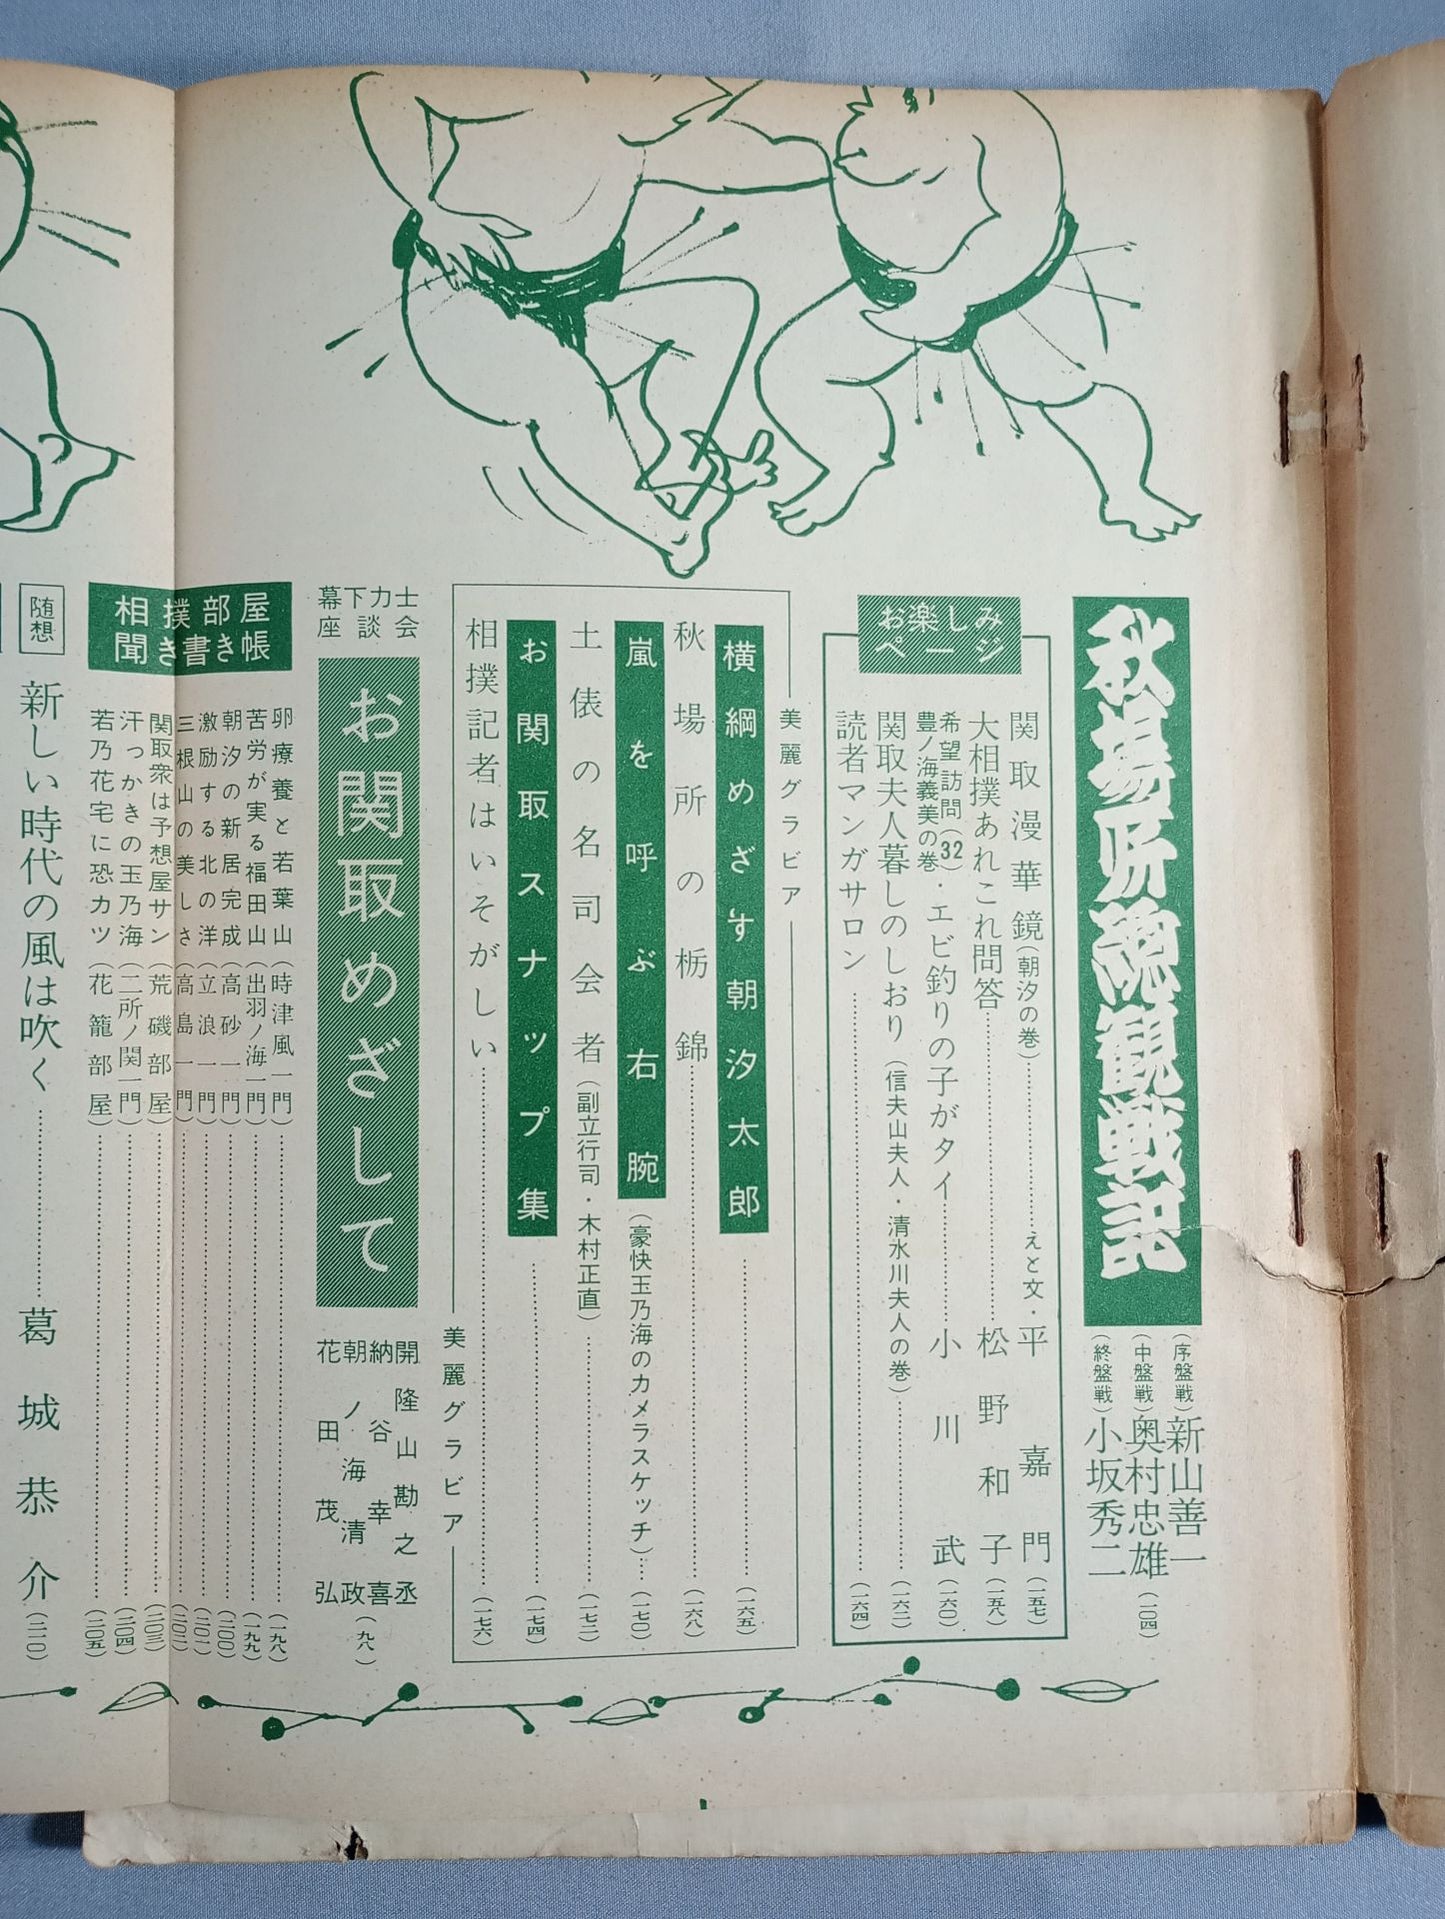 秋場所総観戦記
(序盤戦)新山善一
(中盤戦)奥村忠雄(一〇四)
(終盤戦)小坂秀二
お楽しみページ
関取漫華鏡(朝汐の巻)……えと文・平嘉門(一五七)
大相撲あれこれ問答……松野和子(一五八)
希望訪問(32)豊ノ海義美の巻・エビ釣りの子がタイ……小川武(一六〇)
関取夫人暮しのしおり(信夫山夫人・清水川夫人の巻)……(一六二)
読者マンガサロン……(一六四)
美麗グラビア
横綱めざす朝汐太郎……(一六五)
秋場所の栃錦……(一六八)
嵐を呼ぶ右腕(豪快玉乃海のカメラスケッチ)……(一七〇)
土俵の名司会者(副立行司・木村正直)……(一七二)
お関取スナップ集……(一七四)
相撲記者はいそがしい……(一七六)
美麗グラビア
幕下力士座談会
お関取めざして
開隆山勘之丞
納谷幸喜
朝ノ海清政
花田茂弘
(九八)
相撲部屋聞き書き帳
卵療養と若葉山(時津風一門)……(一九八)
苦労が実る福田山(出羽ノ海一門)……(一九九)
朝汐の新居完成(高砂一門)……(二〇〇)
激励する北の洋(立浪一門)……(二〇一)
三根山の美しさ(高島一門)……(二〇二)
関取衆は予想屋サン(荒磯部屋)……(二〇三)
汗っかきの玉乃海(二所ノ関一門)……(二〇四)
若乃花宅に恐カツ(花籠部屋)……(二〇五)
随想
新しい時代の風は吹く……葛城恭介(二一〇)